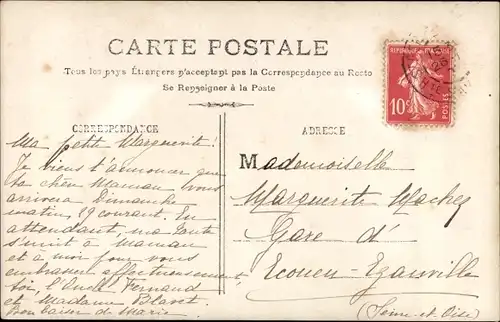 CARTE POSTALE
Tous les pays Étrangers n'acceptent pas la Correspondance au Recto
Se Renseigner à la Poste
CORRESPONDANCE
Ma petit Marguerite!
Je viens t'annoncer que
ta chère Maman vous
arrivera Dimanche
matin, 19 courant. En
attendant, ma Tante
s'unit à Maman
et à moi pour vous
embrasser affectueusement
toi, l'Oncle Fernand
et Madame Blaset.
Bon baiser de Marie
ADRESSE
Mademoiselle
Marguerite Machez
Gare d'
Ecouen-Ezanville
(Seine-et-Oise)
REPUBLIQUE FRANÇAISE
10c
POSTES